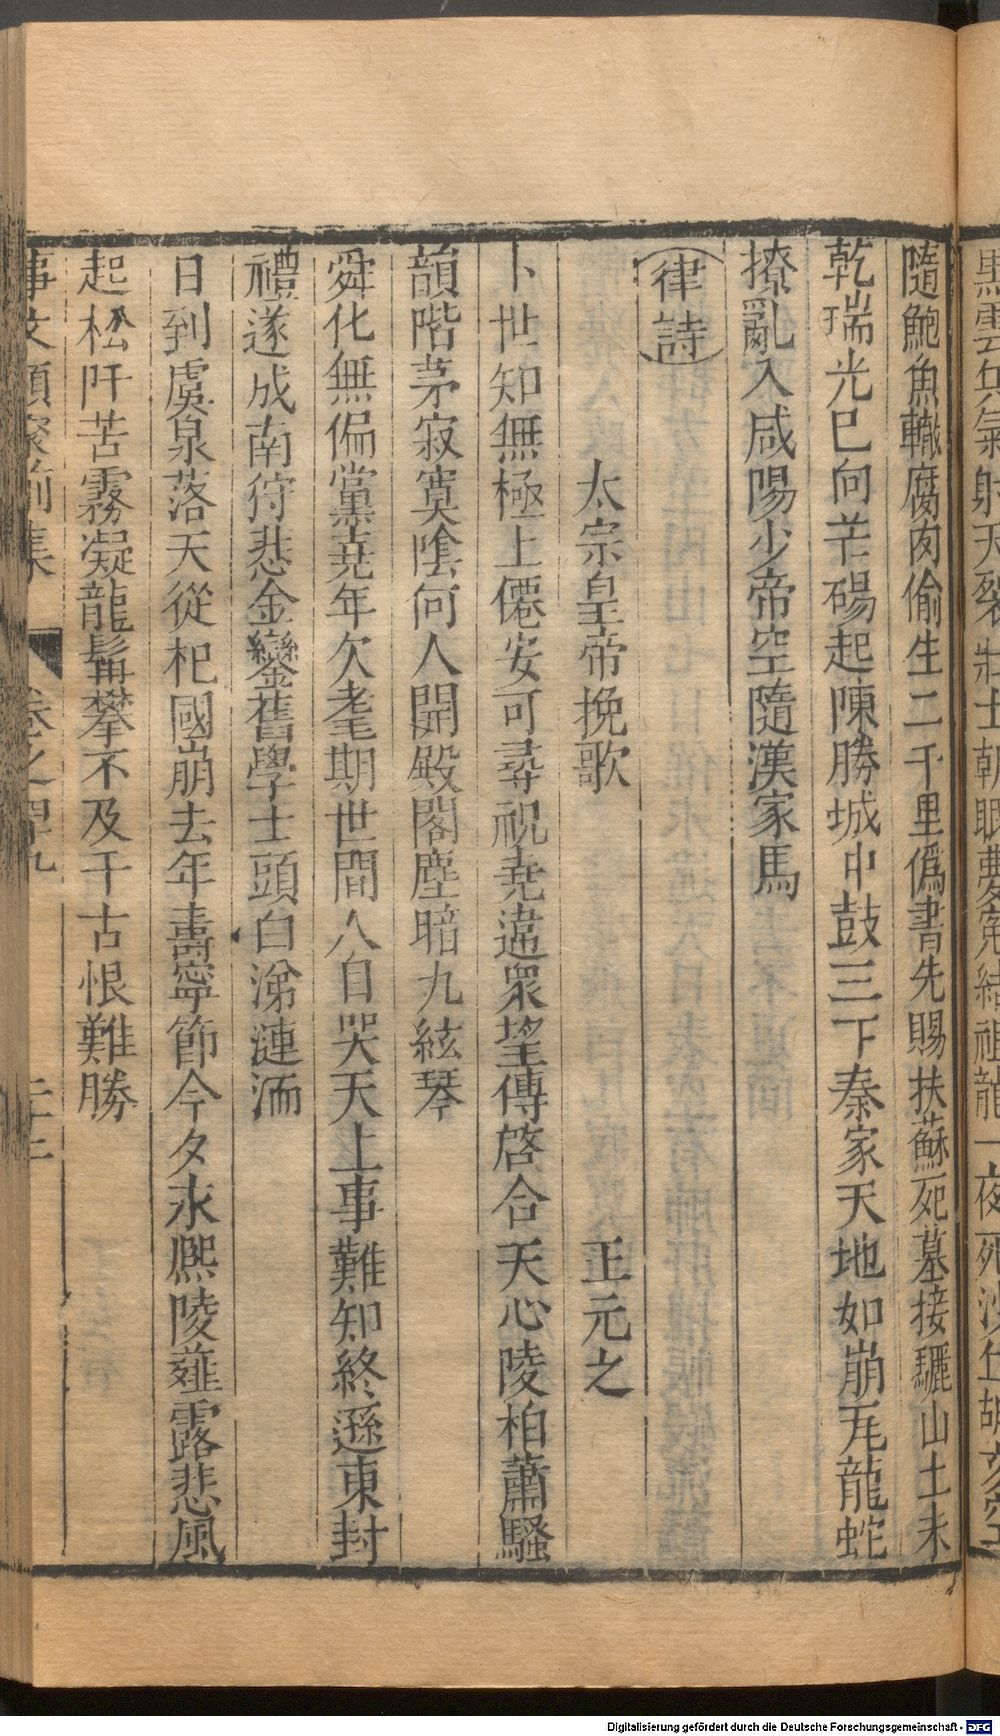 黑雲兵氣射天裂壯士朝眠夢寃結祖龍一夜死沙丘胡亥空
隨鮑魚轍腐肉偷生二千里僞書先賜扶蘇死墓接驪山土未
乾瑞光已向芒碭起陳勝城中鼓三下秦家天地如崩瓦龍蛇
撩亂入咸陽少帝空隨漢家馬
律詩
太宗皇帝挽歌　王元之
卜世知無極上僊安可尋視堯違衆望傳啓合天心陵柏蕭騷
韻階茅寂寞陰何人開殿閣塵暗九絃琴
舜化無偏黨堯年欠耄期世間人自哭天上事難知終遜東封
禮遂成南狩悲金鑾舊學士頭白涕漣洏
日到虞泉落天從杞國崩去年壽寧節今夕永熙陵薤露悲風
起松阡苦霧凝龍髯攀不及千古恨難勝
事文類聚前集　卷之四十九　二十二
Digitalisierung gefördert durch die Deutsche Forschungsgemeinschaft - DFG